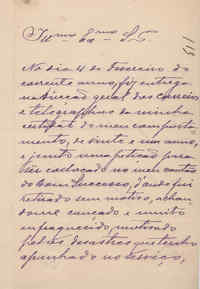 Illmo Exmo Sr.
No dia 4 de Fevereiro do
corrente anno, fiz entrega
na direcção geral dos correios
e telegraphos da minha
certidão do meu comporta-
mento, de vinte e um anno,
e junto uma petição para
ser collocado no meu cantão
do Bom Successo, d'onde fui
retirado sem motivo, achan-
dome cançado e muito
infraquecido, motivado
pelos desastres que tenho
apanhado no serviço,